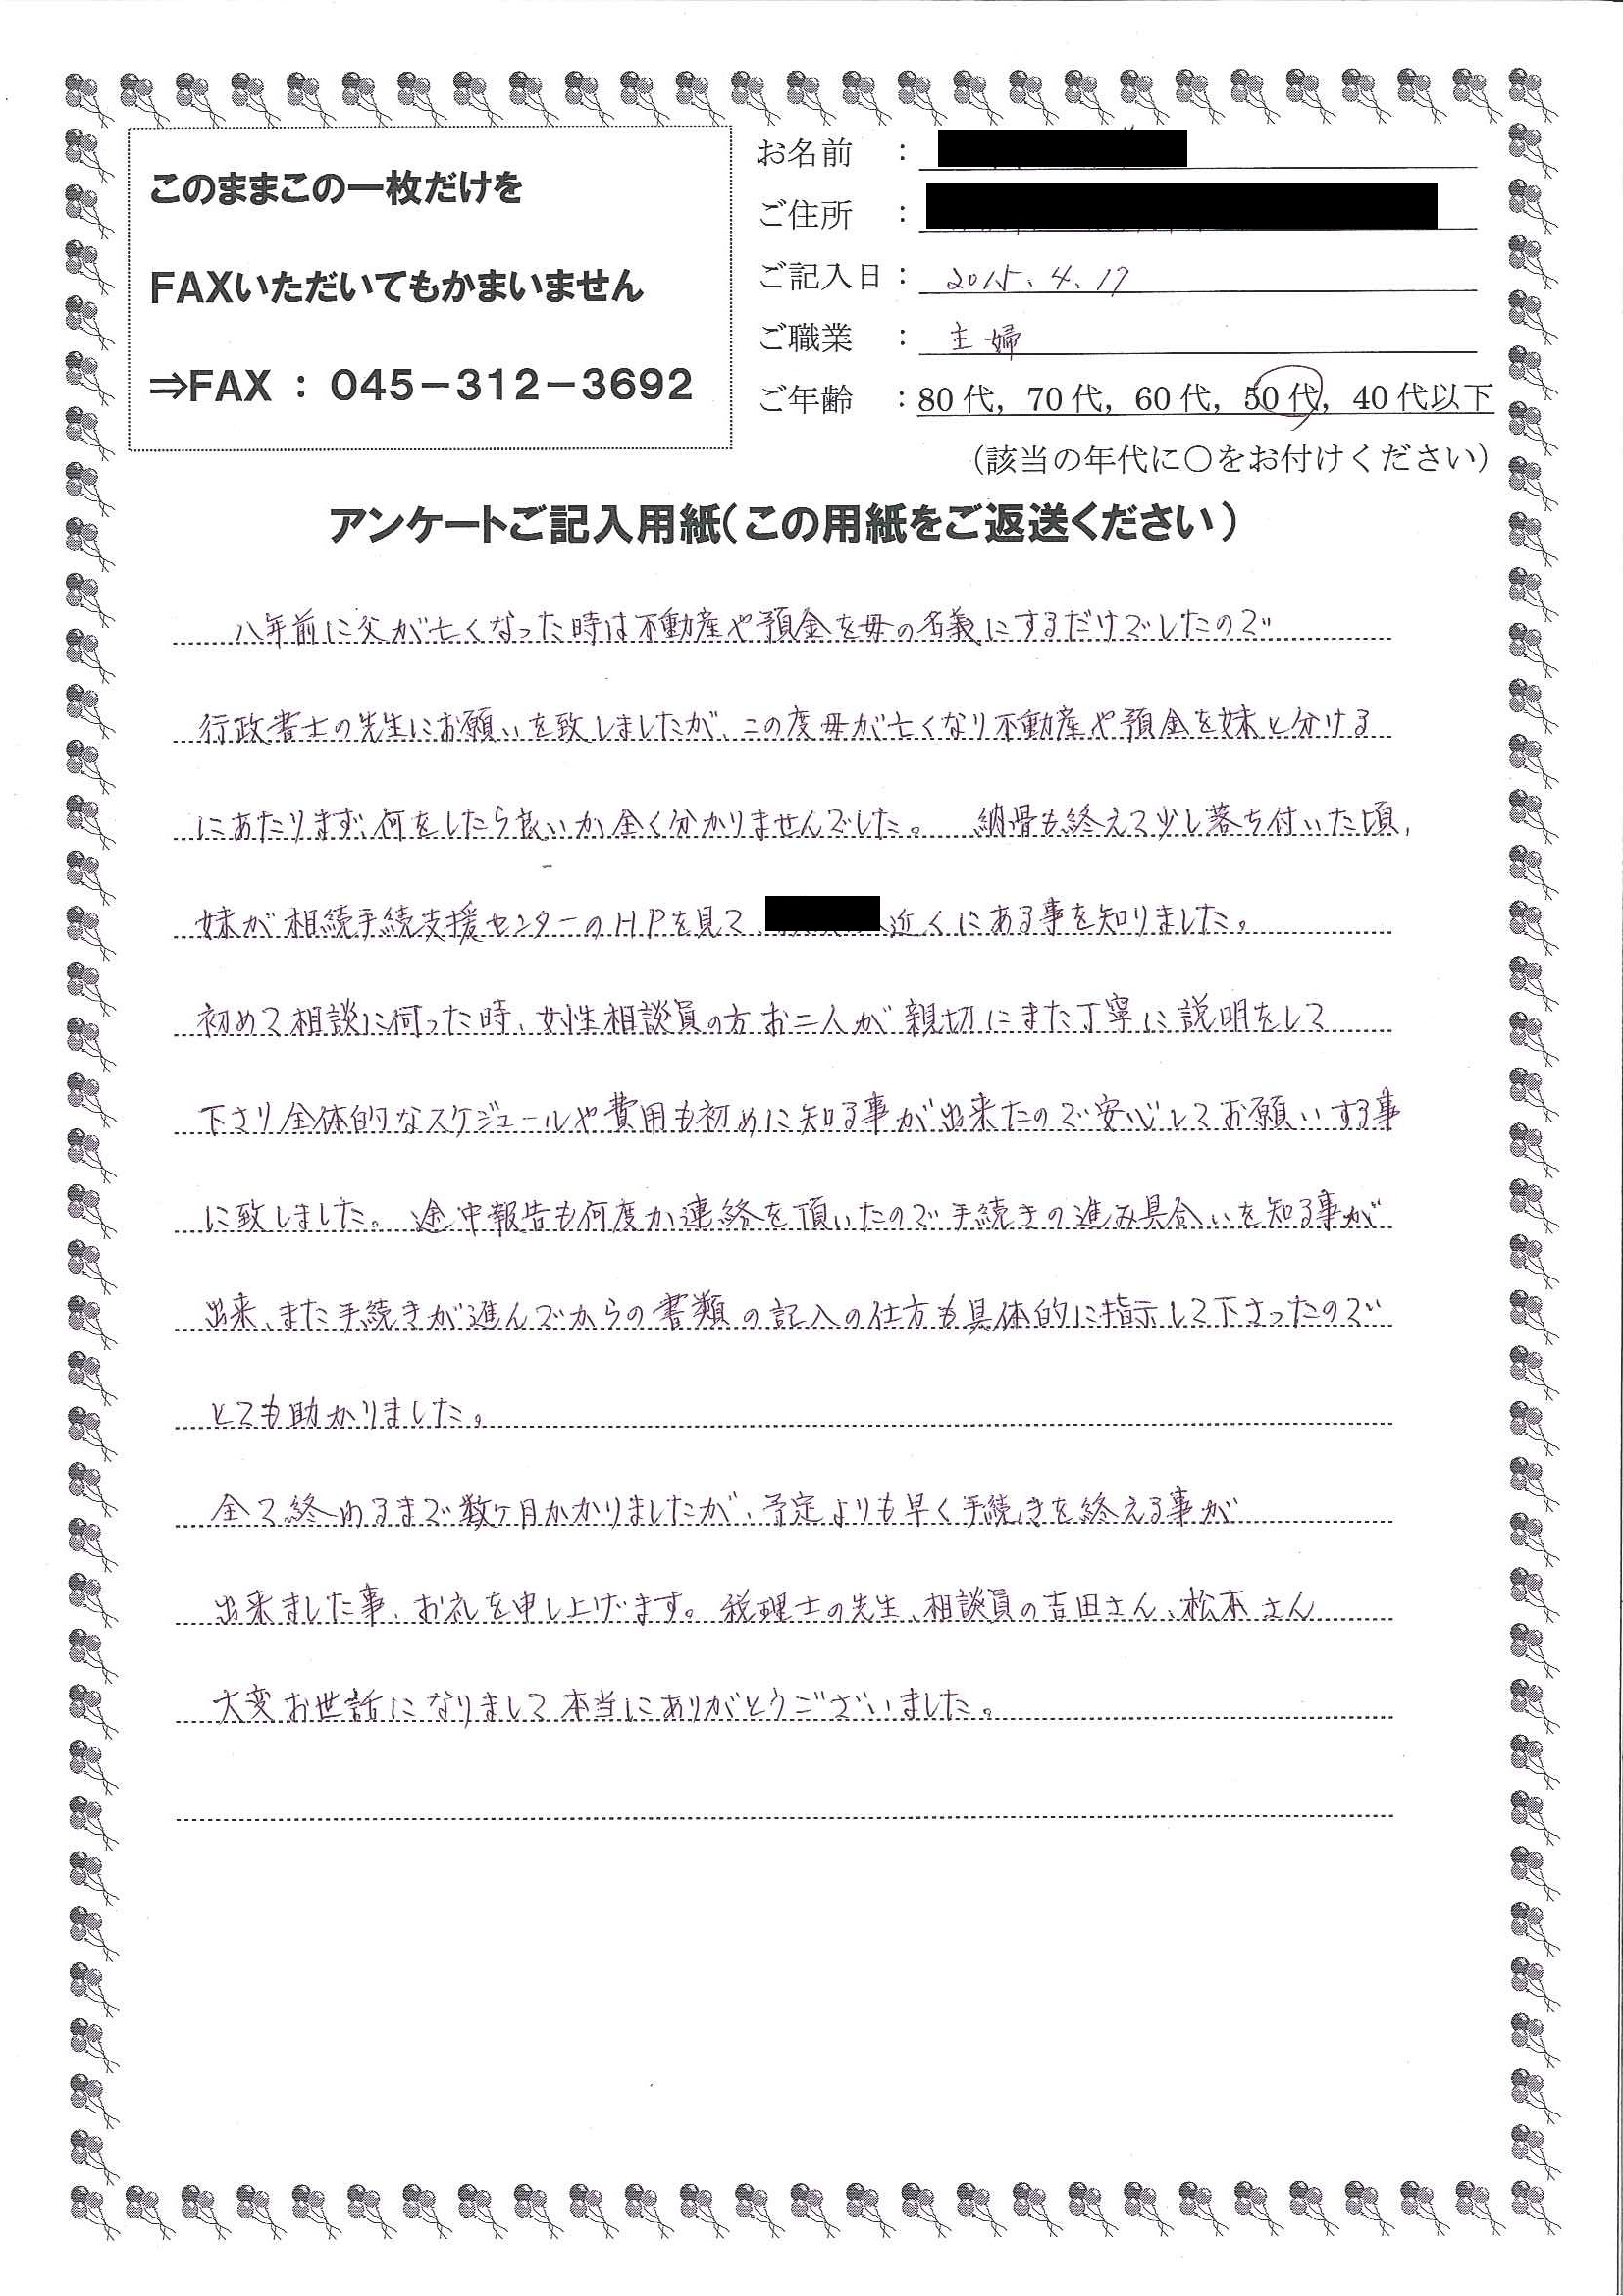 このままこの一枚だけを
FAXいただいてもかまいません
⇒FAX : 045-312-3692
お名前 :
ご住所 :
ご記入日 : 2015.4.17
ご職業 : 主婦
ご年齢 : 80代, 70代, 60代, 50代, 40代以下
（該当の年代に〇をお付けください）
アンケートご記入用紙（この用紙をご返送ください）
八年前に父が亡くなった時は不動産や預金を母の名義にするだけでしたので
行政書士の先生にお願いを致しましたが、この度母が亡くなり不動産や預金を妹と分ける
にあたりまず、何をしたら良いか全く分かりませんでした。 納骨も終えて少し落ち付いた頃、
妹が相続手続支援センターのHPを見て、 近くにある事を知りました。
初めて相談に伺った時、女性相談員の方お二人が親切にまた丁寧に説明をして
下さり全体的なスケジュールや費用も初めに知る事が出来たので安心してお願いする事
に致しました。 途中報告も何度か連絡を頂いたので手続きの進み具合いを知る事が
出来、また手続きが進んでからの書類の記入の仕方も具体的に指示して下さったので
とても助かりました。
全て終わるまで数ヶ月かかりましたが、予定よりも早く手続きを終える事が
出来ました事、お礼を申し上げます。税理士の先生、相談員の吉田さん、松本さん
大変お世話になりまして本当にありがとうございました。